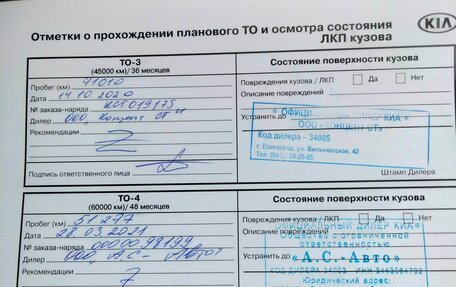 Отметки о прохождении планового ТО и осмотра состояния
ЛКП кузова
KIA
ТО-3
(45000 км)/ 36 месяцев
Пробег (км) 41010
Дата 14.10.2020
№ заказа-наряда КСТ019175
Дилер ООО, Концепт СТ"
Рекомендации
Подпись ответственного лица
Состояние поверхности кузова
Повреждения кузова / ЛКП Да Нет
Описание повреждений
Устранить до
* ОФИЦИАЛЬНЫЙ ДИЛЕР КИА *
ООО «КОНЦЕПТ СТ»
Код дилера - 34005
г. Волгоград, ул. Вильнюсская, 42
Тел. (84-), 25-25-05
Штамп Дилера
ТО-4
(60000 км)/ 48 месяцев
Пробег (км) 51 277
Дата 28.03.2021
№ заказа-наряда 0000098199
Дилер ООО, АС - Авто"
Рекомендации
Состояние поверхности кузова
Повреждения кузова / ЛКП Да Нет
Описание повреждений
Устранить до
ОФИЦИАЛЬНЫЙ ДИЛЕР КИА
Общество с ограниченной
ответственностью
«А.С.-Авто»
КОД ДИЛЕРА 34003 ИНН
Юридический адрес: